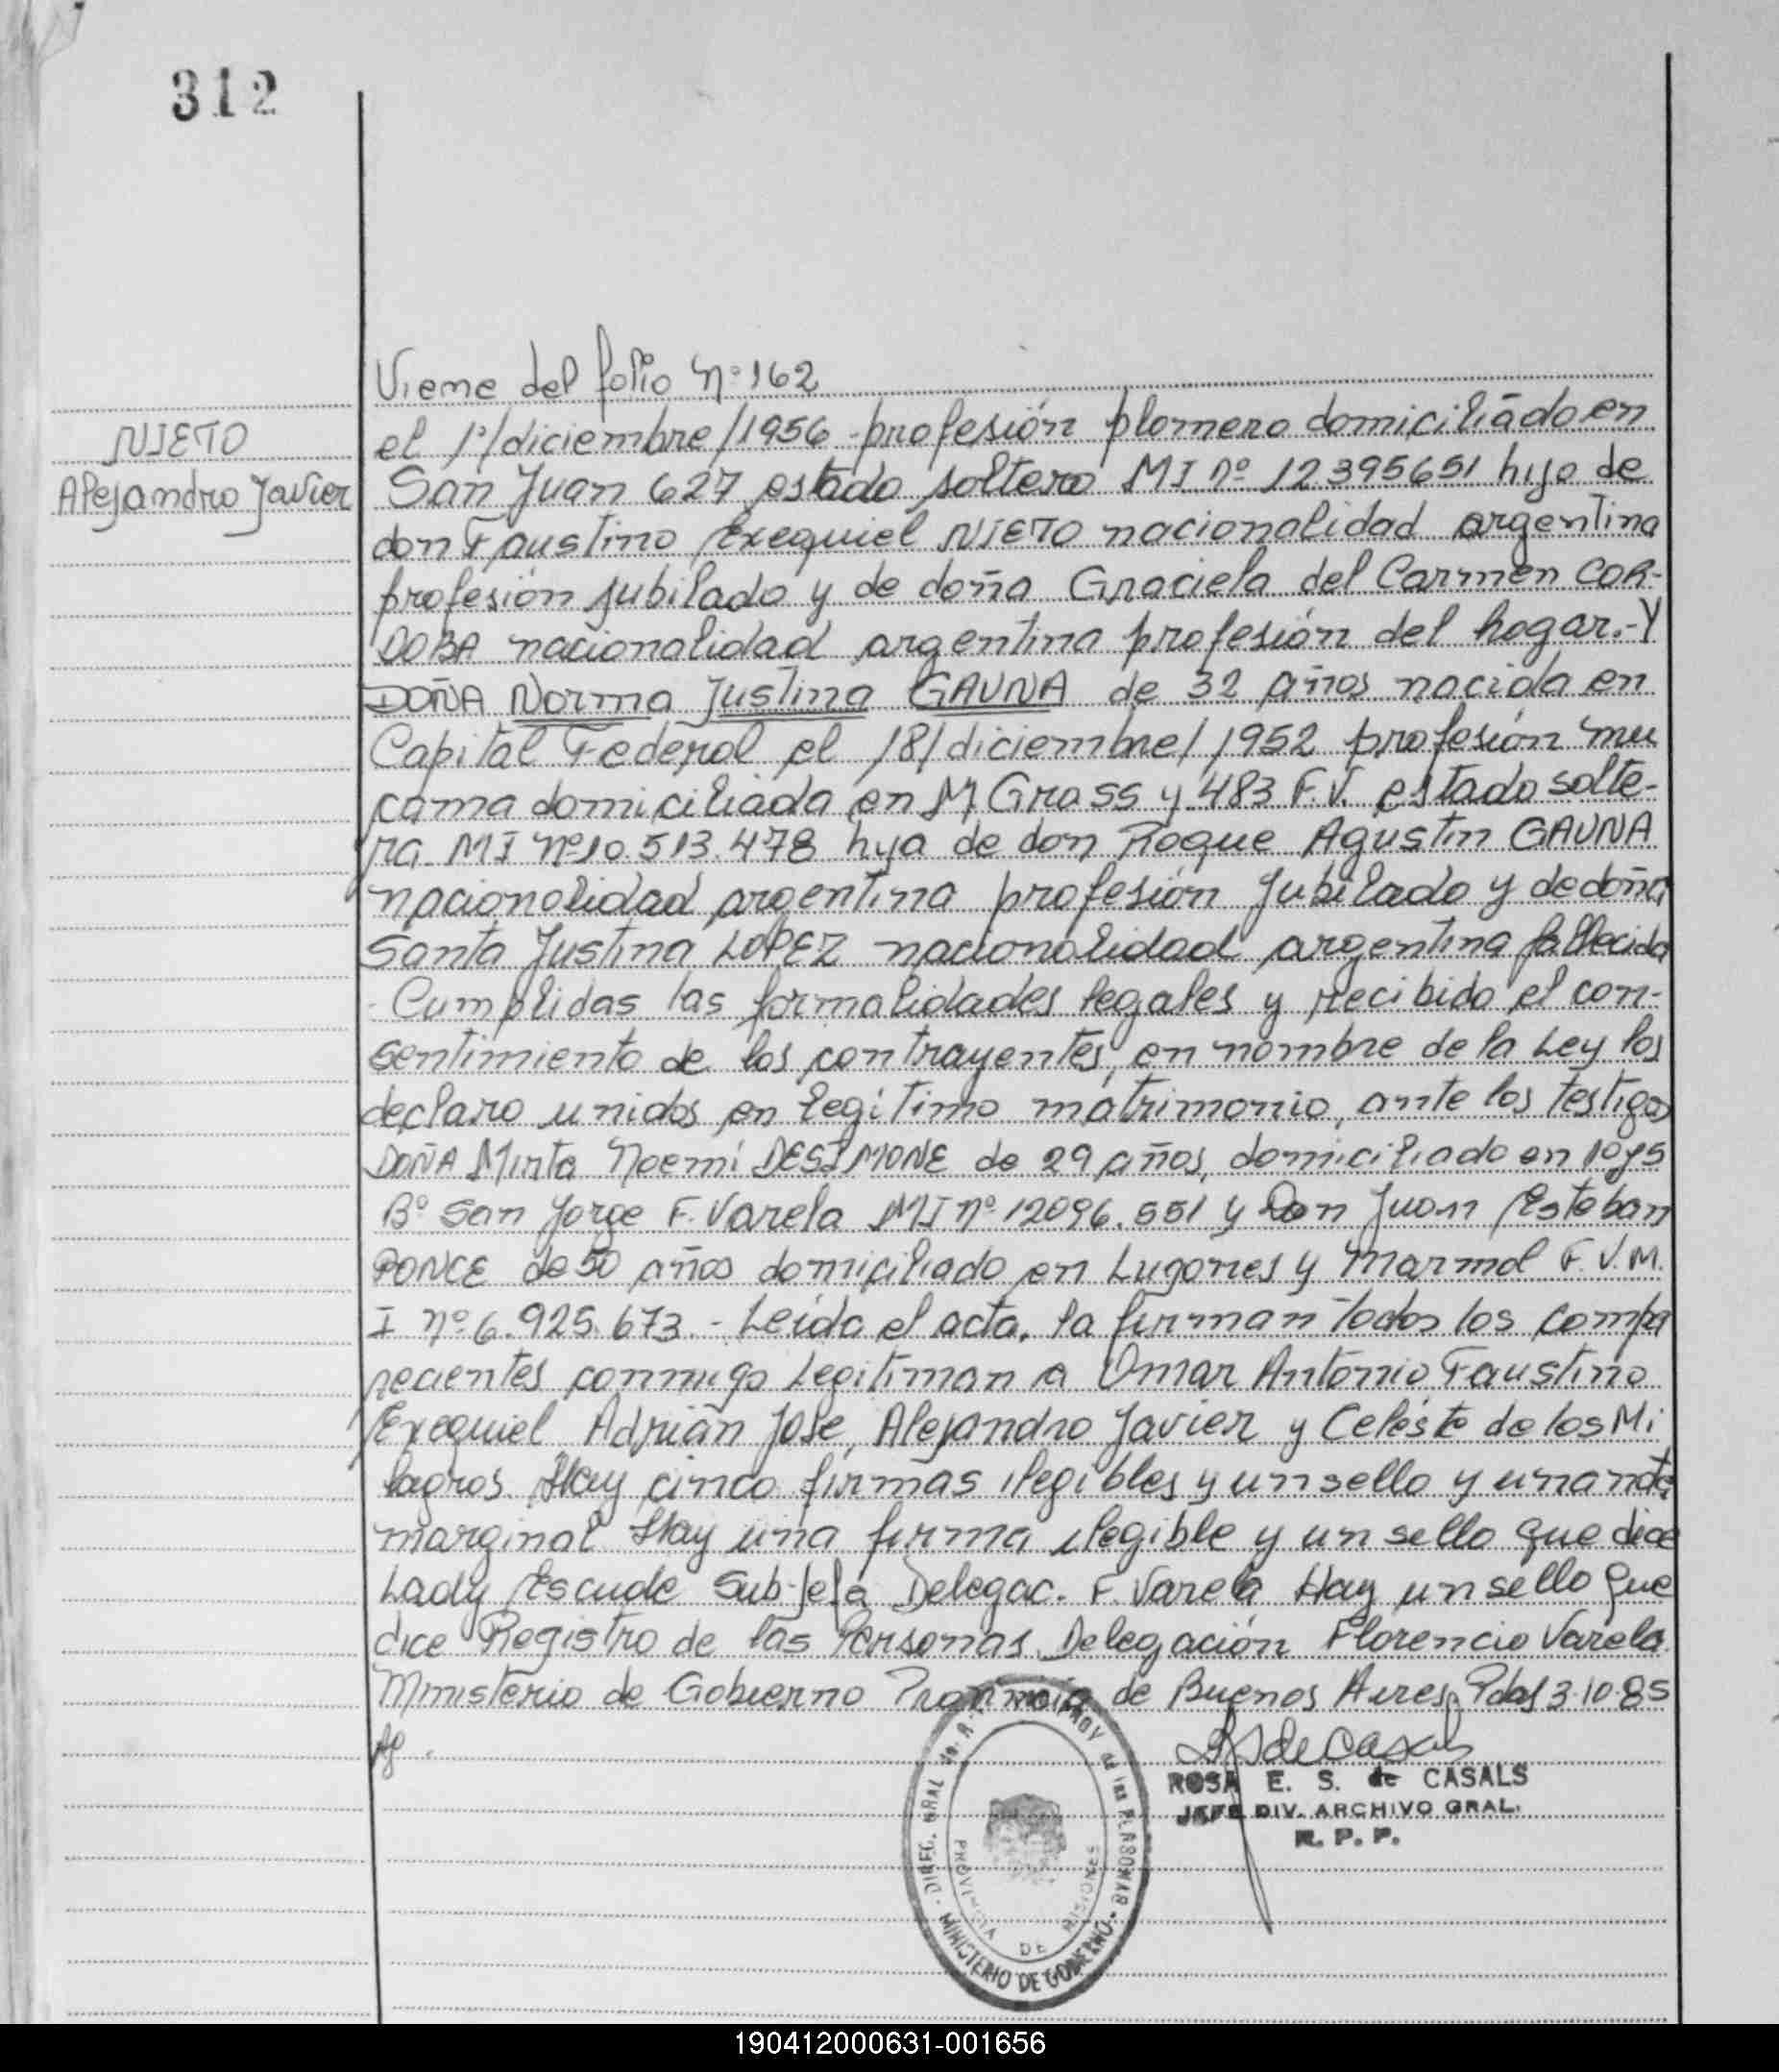 312
Viene del folio Nº 162
NIETO
Alejandro Javier
el 1º/diciembre/1956 profesión plomero domiciliado en
San Juan 627 estado soltero MI nº 12395651 hijo de
don Faustino Exequiel NIETO nacionalidad argentina
profesión jubilado y de doña Graciela del Carmen COR-
DOBA nacionalidad argentina profesión del hogar.- Y
DOÑA Norma Justina GAUNA de 32 años nacida en
Capital Federal el 18/diciembre/1952 profesión mu
cama domiciliada en M Grass y 483 F.V. estado solte-
ra MI nº 10.513.478 hija de don Roque Agustin GAUNA
nacionalidad argentina profesión Jubilado y de doña
Santa Justina LOPEZ nacionalidad argentina fallecida
- Cumplidas las formalidades legales y recibido el con-
sentimiento de los contrayentes, en nombre de la Ley los
declaro unidos en legítimo matrimonio, ante los testigos
DOÑA Mirta Noemí DESIMONE de 29 años, domiciliado en 10 y 5
Bº San Jorge F. Varela MI nº 12096.551 y Don Juan Esteban
PONCE de 50 años domiciliado en Lugones y Marmol F.V. M.
I nº 6.925.673.- Leída el acta, la firman todos los compa
recientes conmigo Legitiman a Omar Antonio Faustino
Exequiel Adrián José, Alejandro Javier y Celeste de los Mi
lagros. Hay cinco firmas ilegibles y un sello y una nota
marginal Hay una firma ilegible y un sello que dice
Lady Escude Sub-Jefa Delegac. F. Varela Hay un sello que
dice Registro de las Personas. Delegación Florencio Varela.
Ministerio de Gobierno Provincia de Buenos Aires. Pdas 3-10-85
ROSA E. S. de CASALS
JEFE DIV. ARCHIVO GRAL.
R. P. P.
DIREC. GRAL
PROV de las PERSONAS
MINISTERIO DE GOBIERNO
PROVINCIA DE MISIONES
190412000631-001656